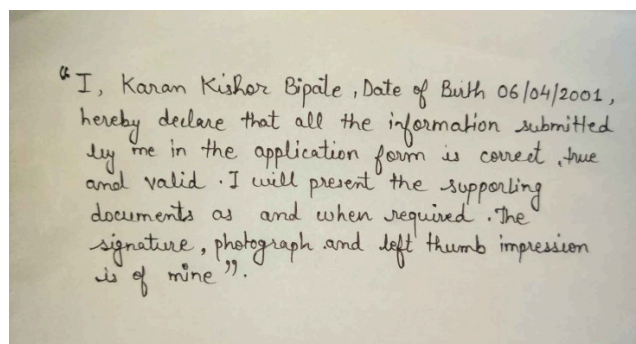 "I, Karan Kishor Bipate, Date of Birth 06/04/2001,
hereby declare that all the information submitted
by me in the application form is correct, true
and valid. I will present the supporting
documents as and when required. The
signature, photograph and left thumb impression
is of mine".